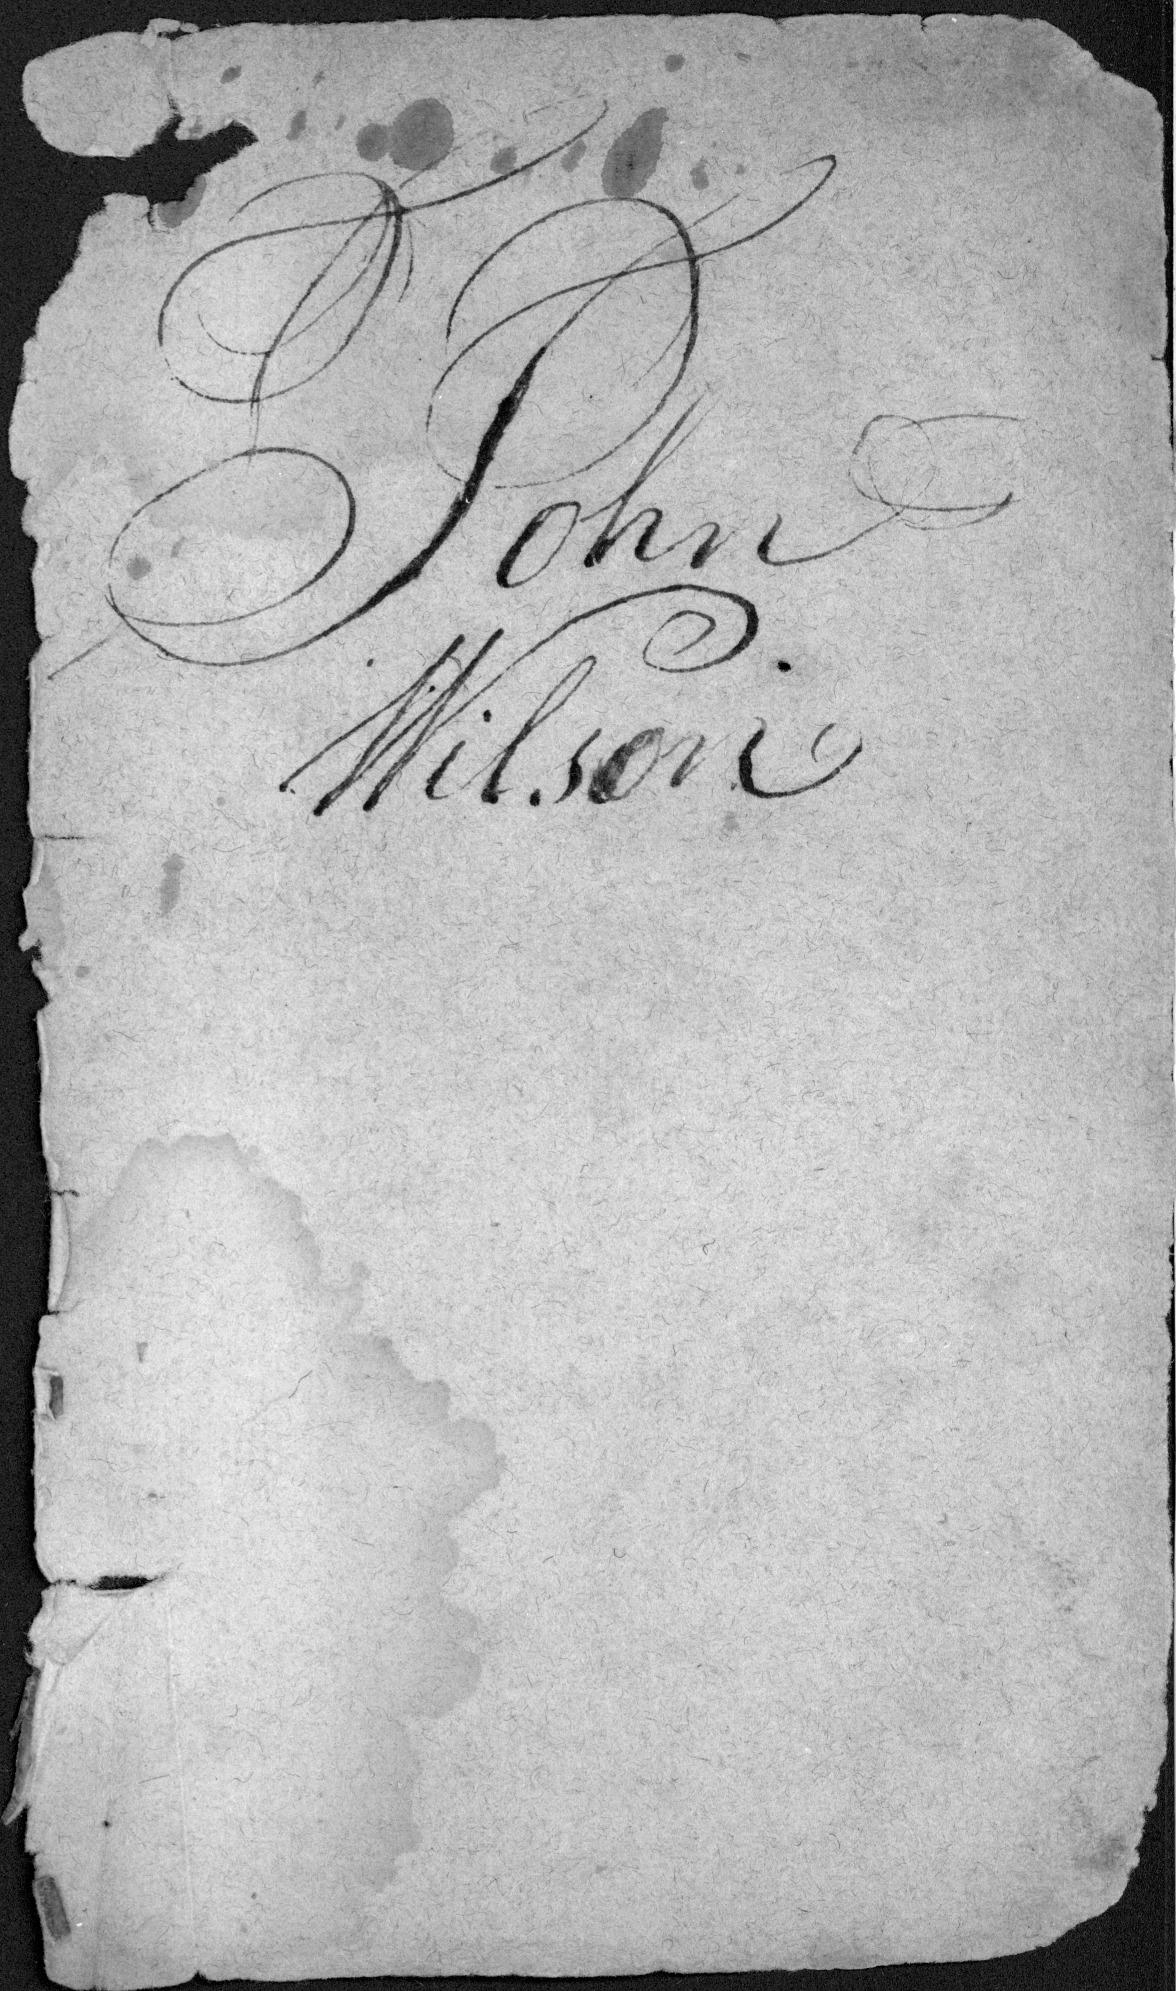 John
Wilson